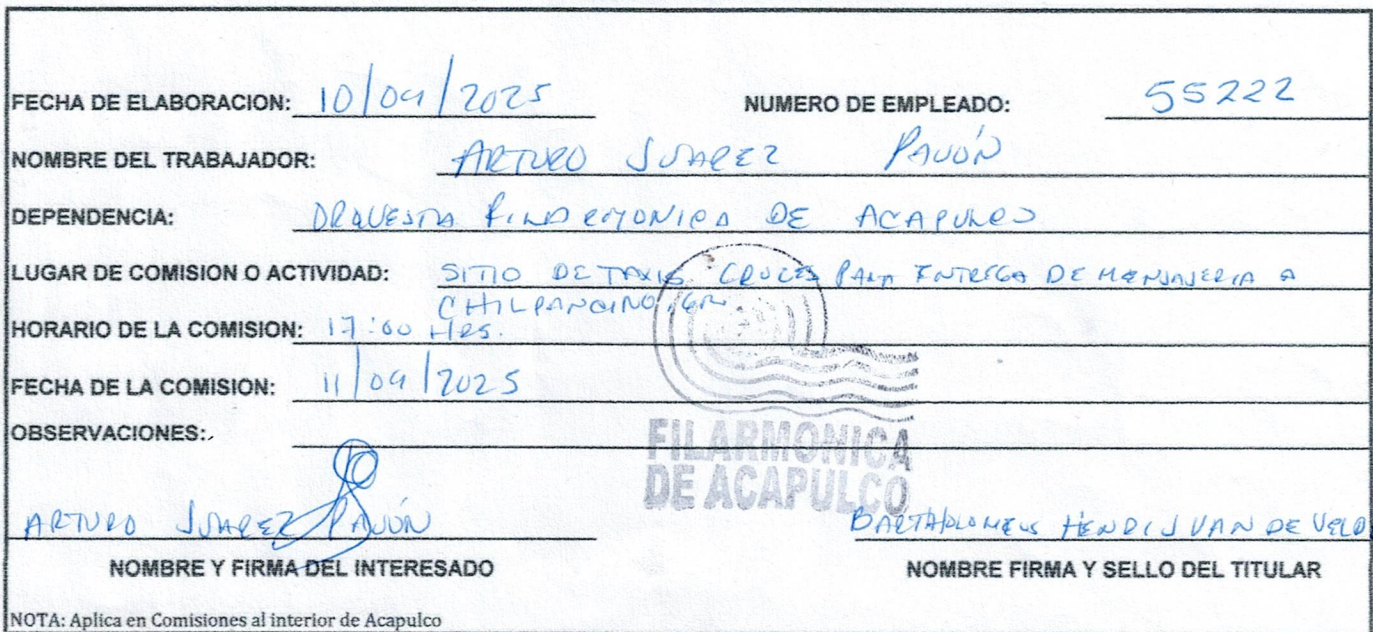 FECHA DE ELABORACION: 10/09/2025 NUMERO DE EMPLEADO: 55222
NOMBRE DEL TRABAJADOR: ARTURO JUAREZ PAVÓN
DEPENDENCIA: ORQUESTA FILARMONICA DE ACAPULCO
LUGAR DE COMISION O ACTIVIDAD: SITIO DE TAXIS CRUCES PARA ENTREGA DE MENSAJERIA A
CHILPANCINO, GR
HORARIO DE LA COMISION: 17:00 HRS.
FECHA DE LA COMISION: 11/09/2025
OBSERVACIONES:
FILARMONICA
DE ACAPULCO
ARTURO JUAREZ PAVÓN BARTHOLOMEUS HENDIJ VAN DE VELD
NOMBRE Y FIRMA DEL INTERESADO NOMBRE FIRMA Y SELLO DEL TITULAR
NOTA: Aplica en Comisiones al interior de Acapulco